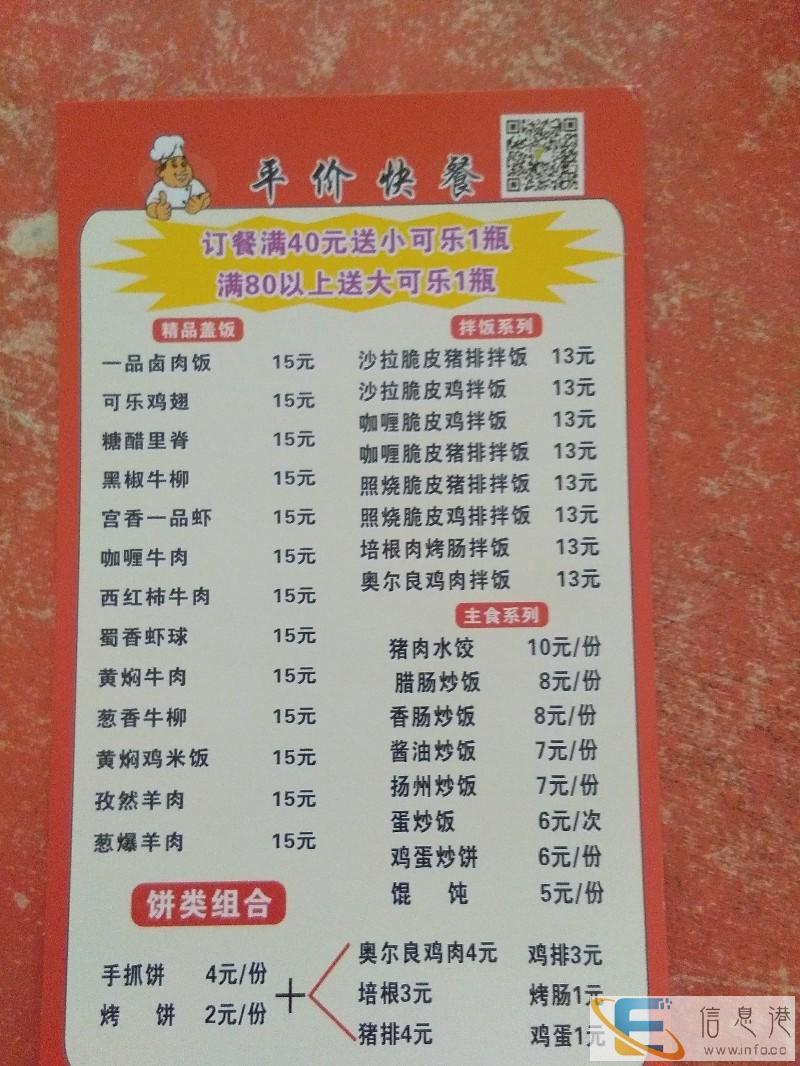 平价快餐
订餐满40元送小可乐1瓶
满80以上送大可乐1瓶
精品盖饭
一品卤肉饭 15元
可乐鸡翅 15元
糖醋里脊 15元
黑椒牛柳 15元
宫香一品虾 15元
咖喱牛肉 15元
西红柿牛肉 15元
蜀香虾球 15元
黄焖牛肉 15元
葱香牛柳 15元
黄焖鸡米饭 15元
孜然羊肉 15元
葱爆羊肉 15元
拌饭系列
沙拉脆皮猪排拌饭 13元
沙拉脆皮鸡拌饭 13元
咖喱脆皮鸡拌饭 13元
咖喱脆皮猪排拌饭 13元
照烧脆皮猪排拌饭 13元
照烧脆皮鸡排拌饭 13元
培根肉烤肠拌饭 13元
奥尔良鸡肉拌饭 13元
主食系列
猪肉水饺 10元/份
腊肠炒饭 8元/份
香肠炒饭 8元/份
酱油炒饭 7元/份
扬州炒饭 7元/份
蛋炒饭 6元/次
鸡蛋炒饼 6元/份
馄 饨 5元/份
饼类组合
手抓饼 4元/份
烤 饼 2元/份
+
奥尔良鸡肉4元 鸡排3元
培根3元 烤肠1元
猪排4元 鸡蛋1元
信息港
www.info.cc